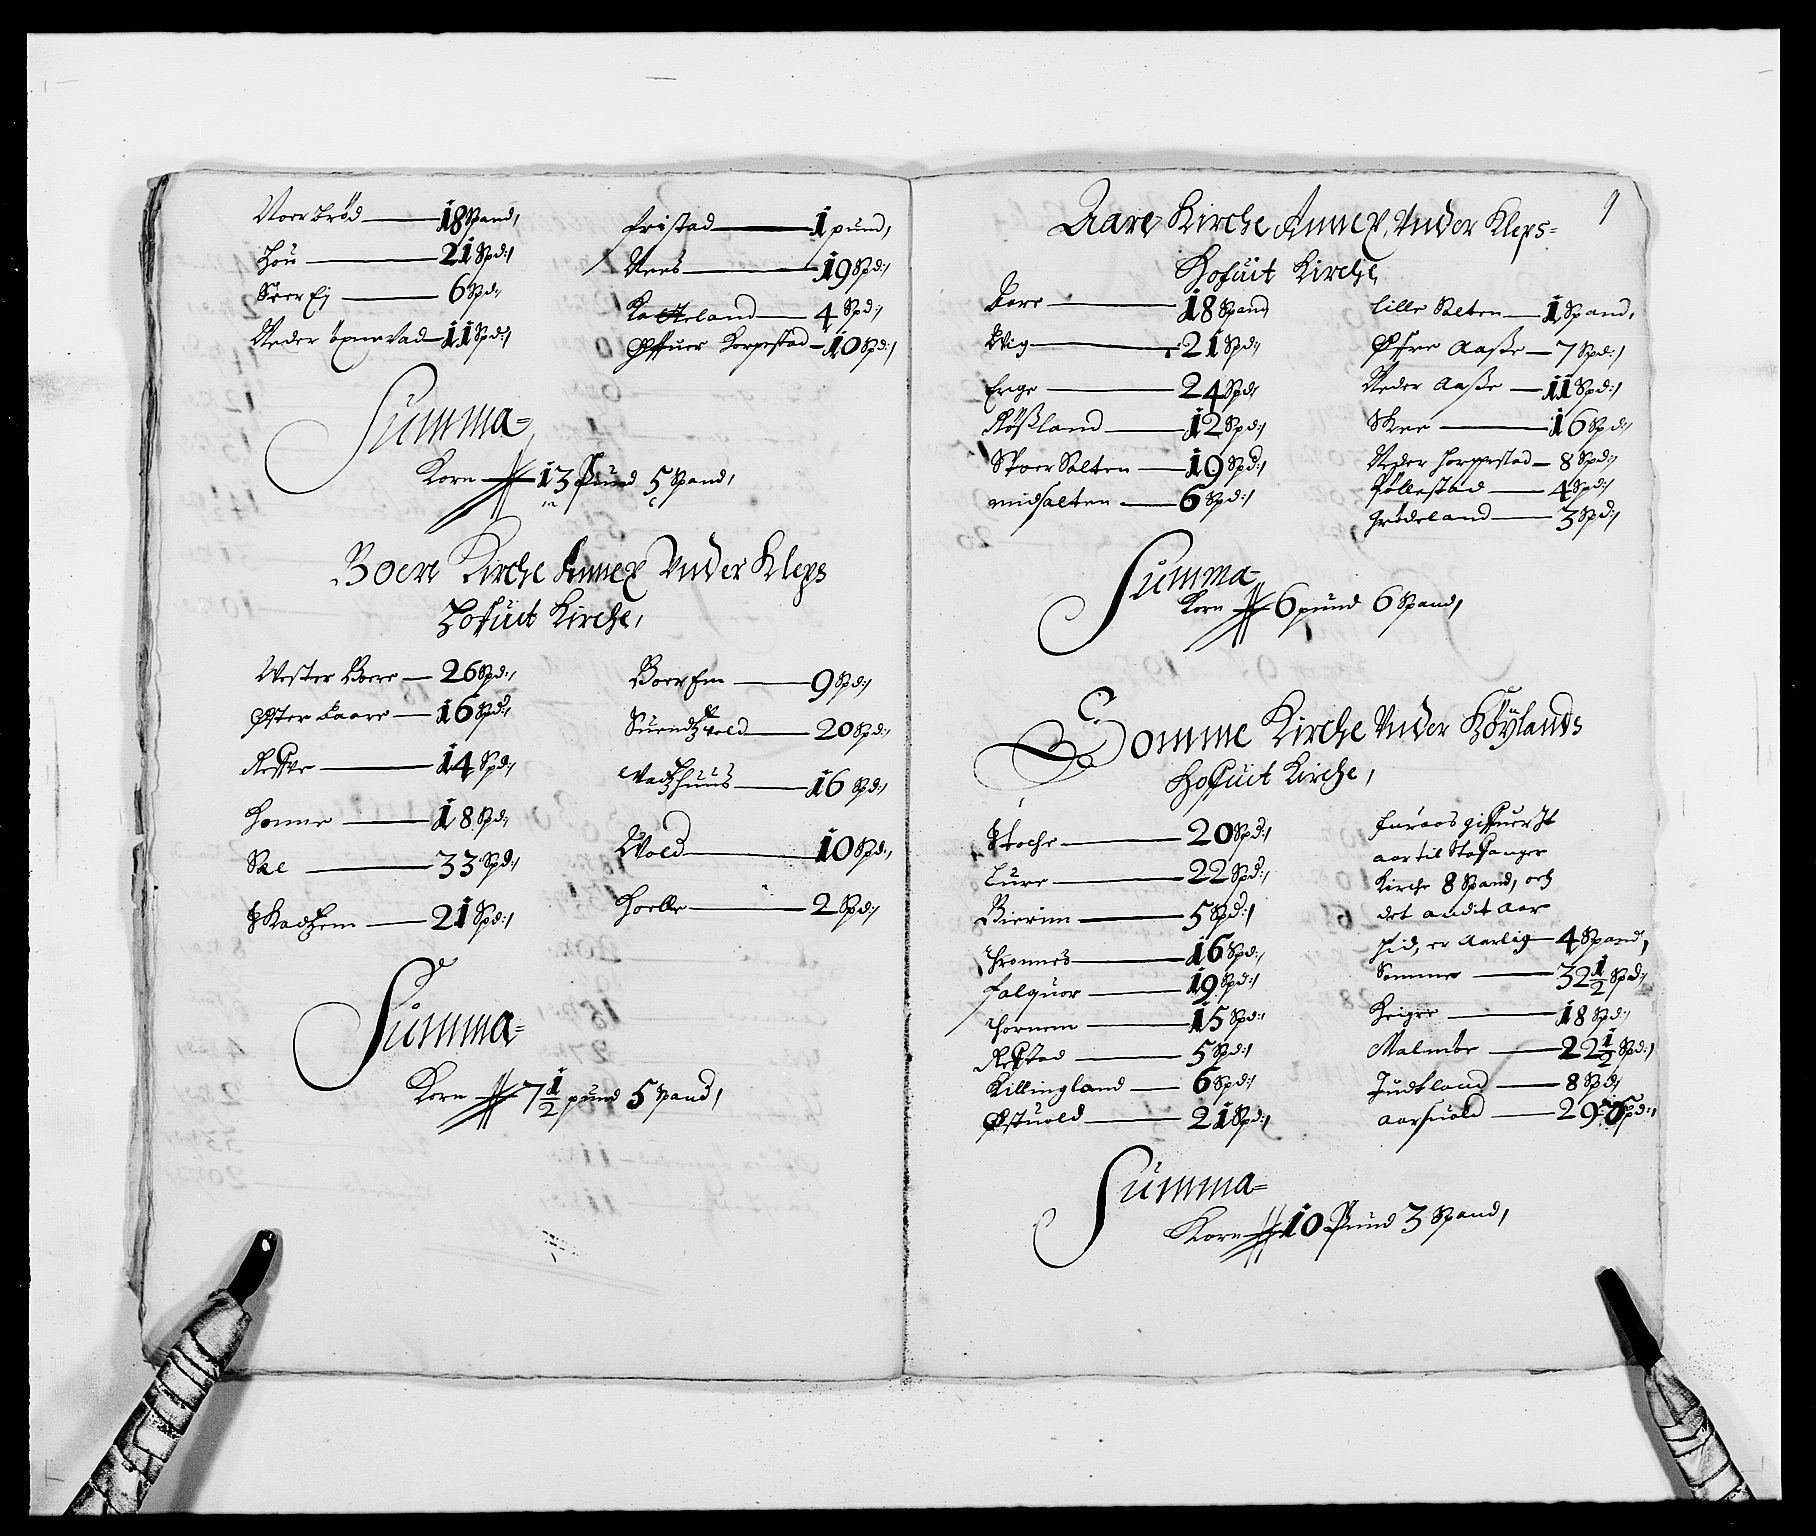 Noerbrød 18 Spand,
Hou 21 Spd:,
SørEj 6 Spd,
Neder Øxnevad 11 Spd:,
Fristad 1 pund,
Nees 19 Spd:,
Katteland 4 Spd:,
Øffuer Horpestad 10 Spd:,
Summa
Korn 13 Pund 5 Spand,
Boere Kirche Annex Vnder Kleps
Hofuit Kirche,
Wester Boere 26 Spd:,
Øster Baare 16 Spd:,
Refve 14 Spd:,
Homme 18 Spd,
Sele 33 Spd:,
Skadhem 21 Spd:,
Boerhem 9 Spd:,
Suendzvold 20 Spd:,
Vadzhuus 16 Spd:,
Wold 10 Spd:,
Hoelle 2 Spd:,
Summa
Korn 7 1/2 pund 5 Spand,
9
Aare Kirche Annex, Vnder Kleps
Hofuit Kirche,
Aare 18 Spand
Wig 21 Spd,
Enge 24 Spd,
Røßland 12 Spd:,
Stoer Salten 19 Spd:,
midsalten 6 Spd:,
Lille Salten 1 Spand,
Øfre Aaße 7 Spd:,
Neder Aaße 11 Spd:,
Skee 16 Spd:,
Neder Horppestad 8 Spd:,
Pollestad 4 Spd:,
Grødeland 3 Spd:,
Summa
Korn 6 pund 6 Spand,
Somme Kirche Vnder Høylands
Hofuit Kirche,
Stoche 20 Spd:,
Lure 22 Spd:,
Bierim 5 Spd:,
Thrones 16 Spd:,
Folquor 19 Spd:,
Hornem 15 Spd:,
Refstad 5 Spd:,
Killingland 6 Spd:,
Østuold 21 Spd:,
Foraas giffuer It
aar til Stafanger
Kirche 8 Spand, och
det andit aar
hid, er Aarlig 4 Spand,
Somme 32 1/2 Spd:,
Heigre 18 Spd:,
Malmée 22 1/2 Spd:,
Judtland 8 Spd
Aarsuold 29 Spd:,
Summa
Korn 10 Pund 3 Spand,